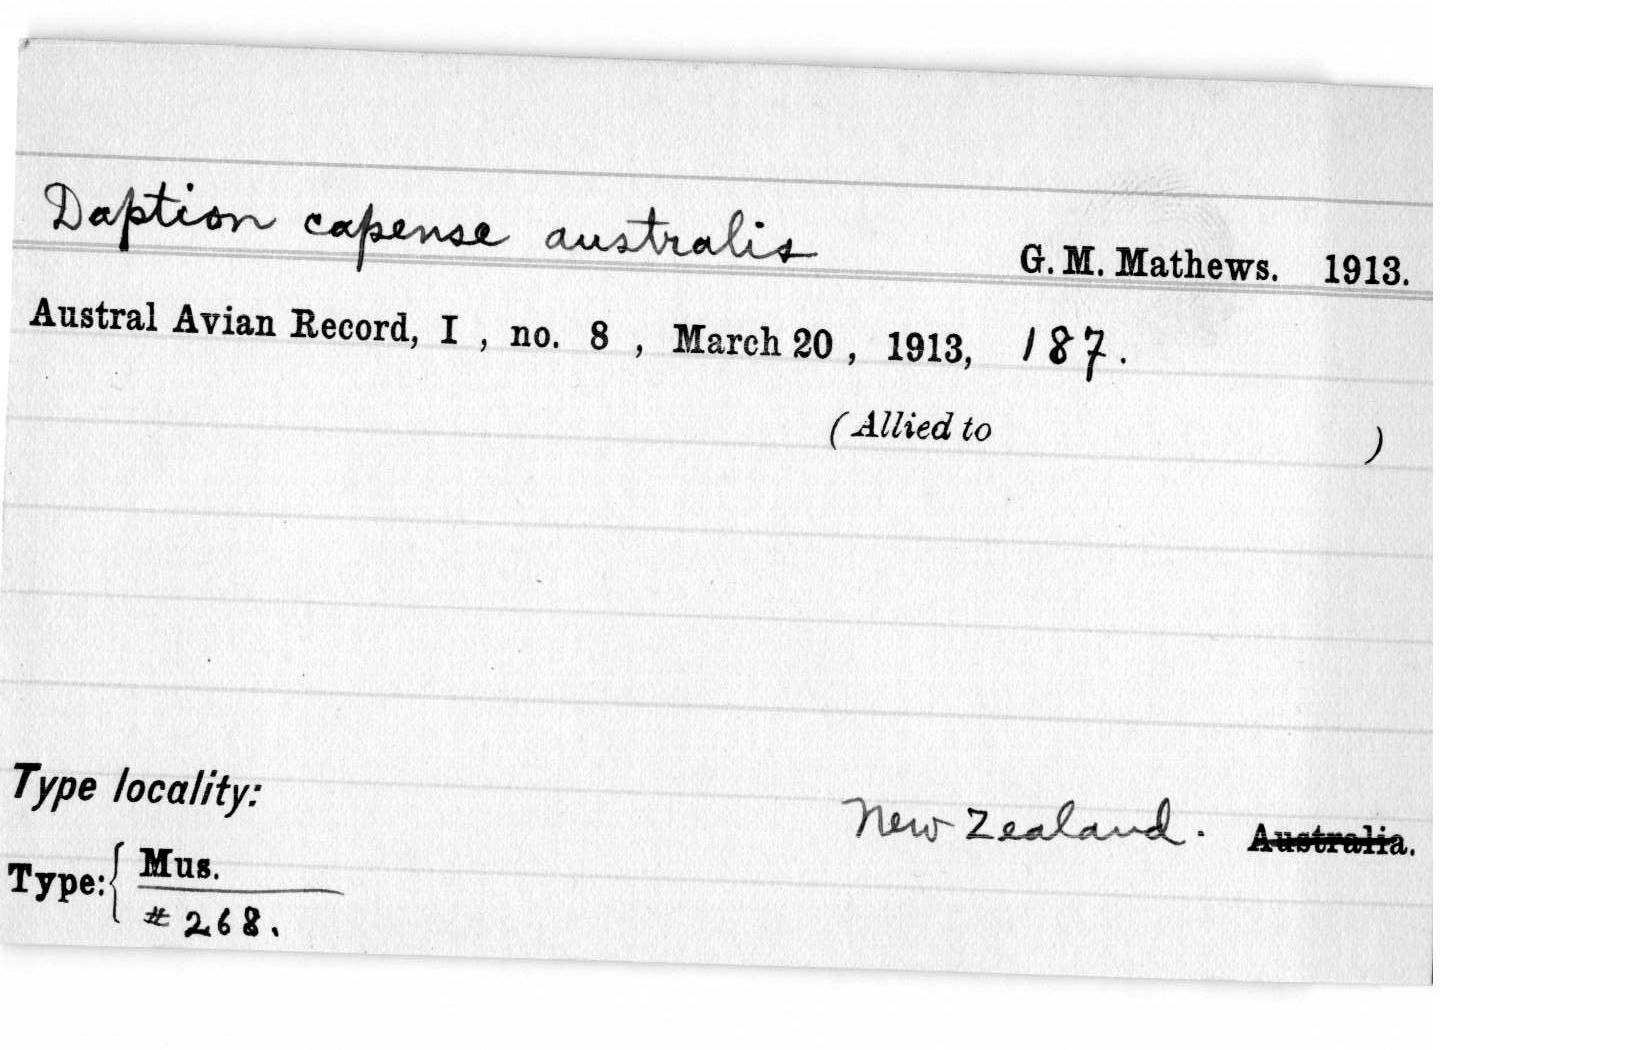 Daption capense australis G. M. Mathews. 1913.
Austral Avian Record, I , no. 8 , March 20 , 1913, 187.
(Allied to )
Type locality:
New Zealand. Australia.
Type: { Mus.
# 268.